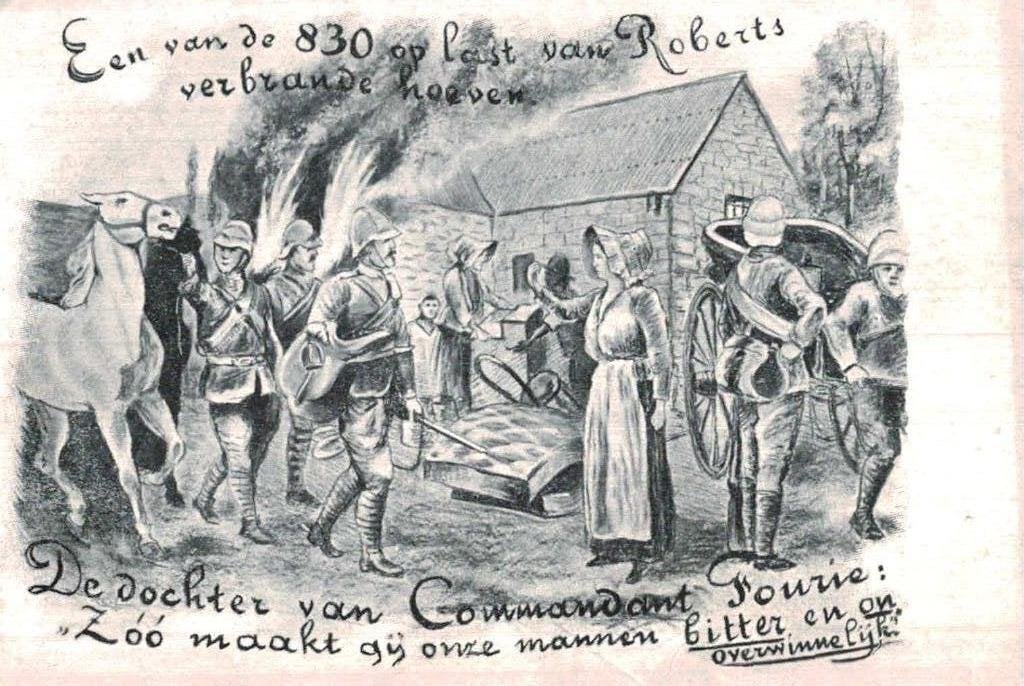 Een van de 830 op last van Roberts
verbrande hoeven.
De dochter van Commandant Fourie:
„Zóó maakt gij onze mannen bitter en on
overwinnelijk."